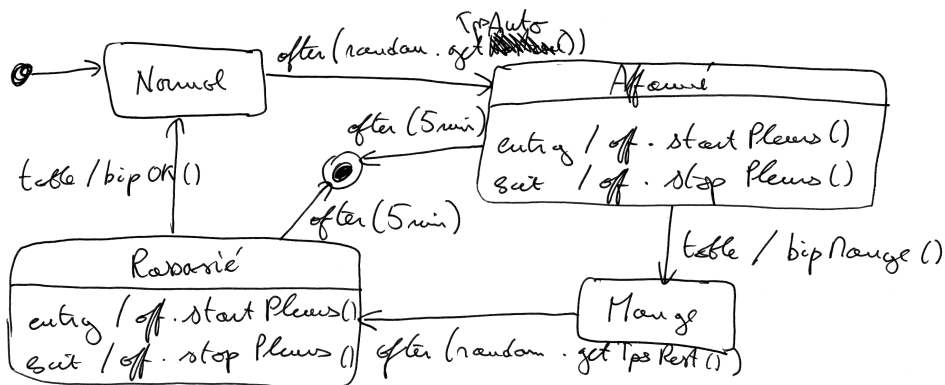 TpsAuto
after(random.get ())
Normal
Affamé
after (5min)
entry / aff.startPleurs()
exit / aff.stop Pleurs()
table / bipOK()
after(5min)
table / bipMange()
Rassasié
entry / aff.startPleurs()
exit / aff.stop Pleurs()
Mange
after (random.getTpsRest())